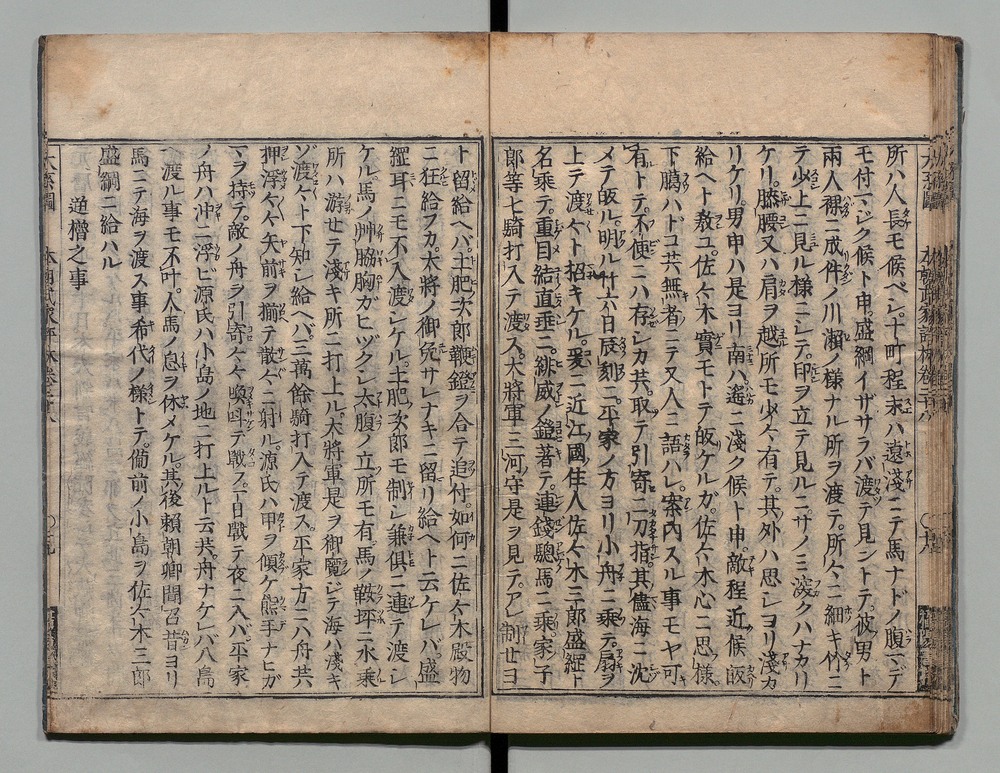 所ハ人長モ候ベシ。十町程末ハ遠淺ニテ馬ナドノ腹マデ
モ付マジク候ト申。盛綱イザサラバ渡テ見ントテ。彼男ト
兩人裸ニ成件ノ川瀬ノ様ナル所ヲ渡テ。所々ニ細キ竹ニ
テ少上ニ見ル様ニシテ。印ヲ立テ見ルニサノミ深クハナカリ
ケリ。膝腰又ハ肩ヲ越所モ少々有テ。其外ハ思シヨリ淺カ
リケリ。男申ハ是ヨリ南ハ遙ニ淺ク候ト申。敵程近候皈
給ヘト敎ユ。佐々木實モトテ皈ケルガ。佐々木心ニ思様。
下臈ハドコ共無者ニテ又人ニ語ハレ。案内スル事モヤ可
有トテ。不便ニハ存シカ共。取テ引寄二刀指。其儘海ニ沈
メテ皈ル。明ル廿六日辰刻ニ。平家ノ方ヨリ小舟ニ乘テ。扇ヲ
上テ渡セ々ト招キケル。爰ニ近江國住人佐々木三郎盛綱ト
名乘テ。重目結直垂ニ。緋威ノ鎧著テ。連錢驄馬ニ乘。家子
郎等七騎打入テ渡ス。大將軍三河守是ヲ見テ。アレ制セヨ
ト留給ヘバ。土肥次郎鞭鐙ヲ合テ追付。如何ニ佐々木殿物
ニ狂給フカ。大將ノ御免サレナキニ留リ給ヘト云ケレバ。盛
綱耳ニモ不入渡シケル。土肥次郎モ制シ兼俱ニ連テ渡シ
ケル。馬ノ艸脇胸ガヒヅクシ太腹ノ立所モ有。馬ノ鞍坪ニ水乘
所ハ游セテ淺キ所ニ打上ル。大將軍是ヲ御覽ジテ海ハ淺キ
ゾ渡々ト下知シ給ヘバ。三萬餘騎打入テ渡ス。平家方ニハ舟共
押浮々々矢前ヲ揃テ散々ニ射ル。源氏ハ甲ヲ傾ケ熊手ナヒガ
マヲ持テ。敵ノ舟ヲ引寄々々喚叫デ戰フ。一日戰テ夜ニ入バ平家
ノ舟ハ沖ニ浮ビ源氏ハ小島ノ地ニ打上ルト云共。舟ナケレバ八島
ヘ渡ル事モ不叶。人馬ノ息ヲ休メケル。其後賴朝卿聞召昔ヨリ
馬ニテ海ヲ渡ス事希代ノ様トテ。備前ノ小島ヲ佐々木三郎
盛綱ニ給ハル
逆櫓之事